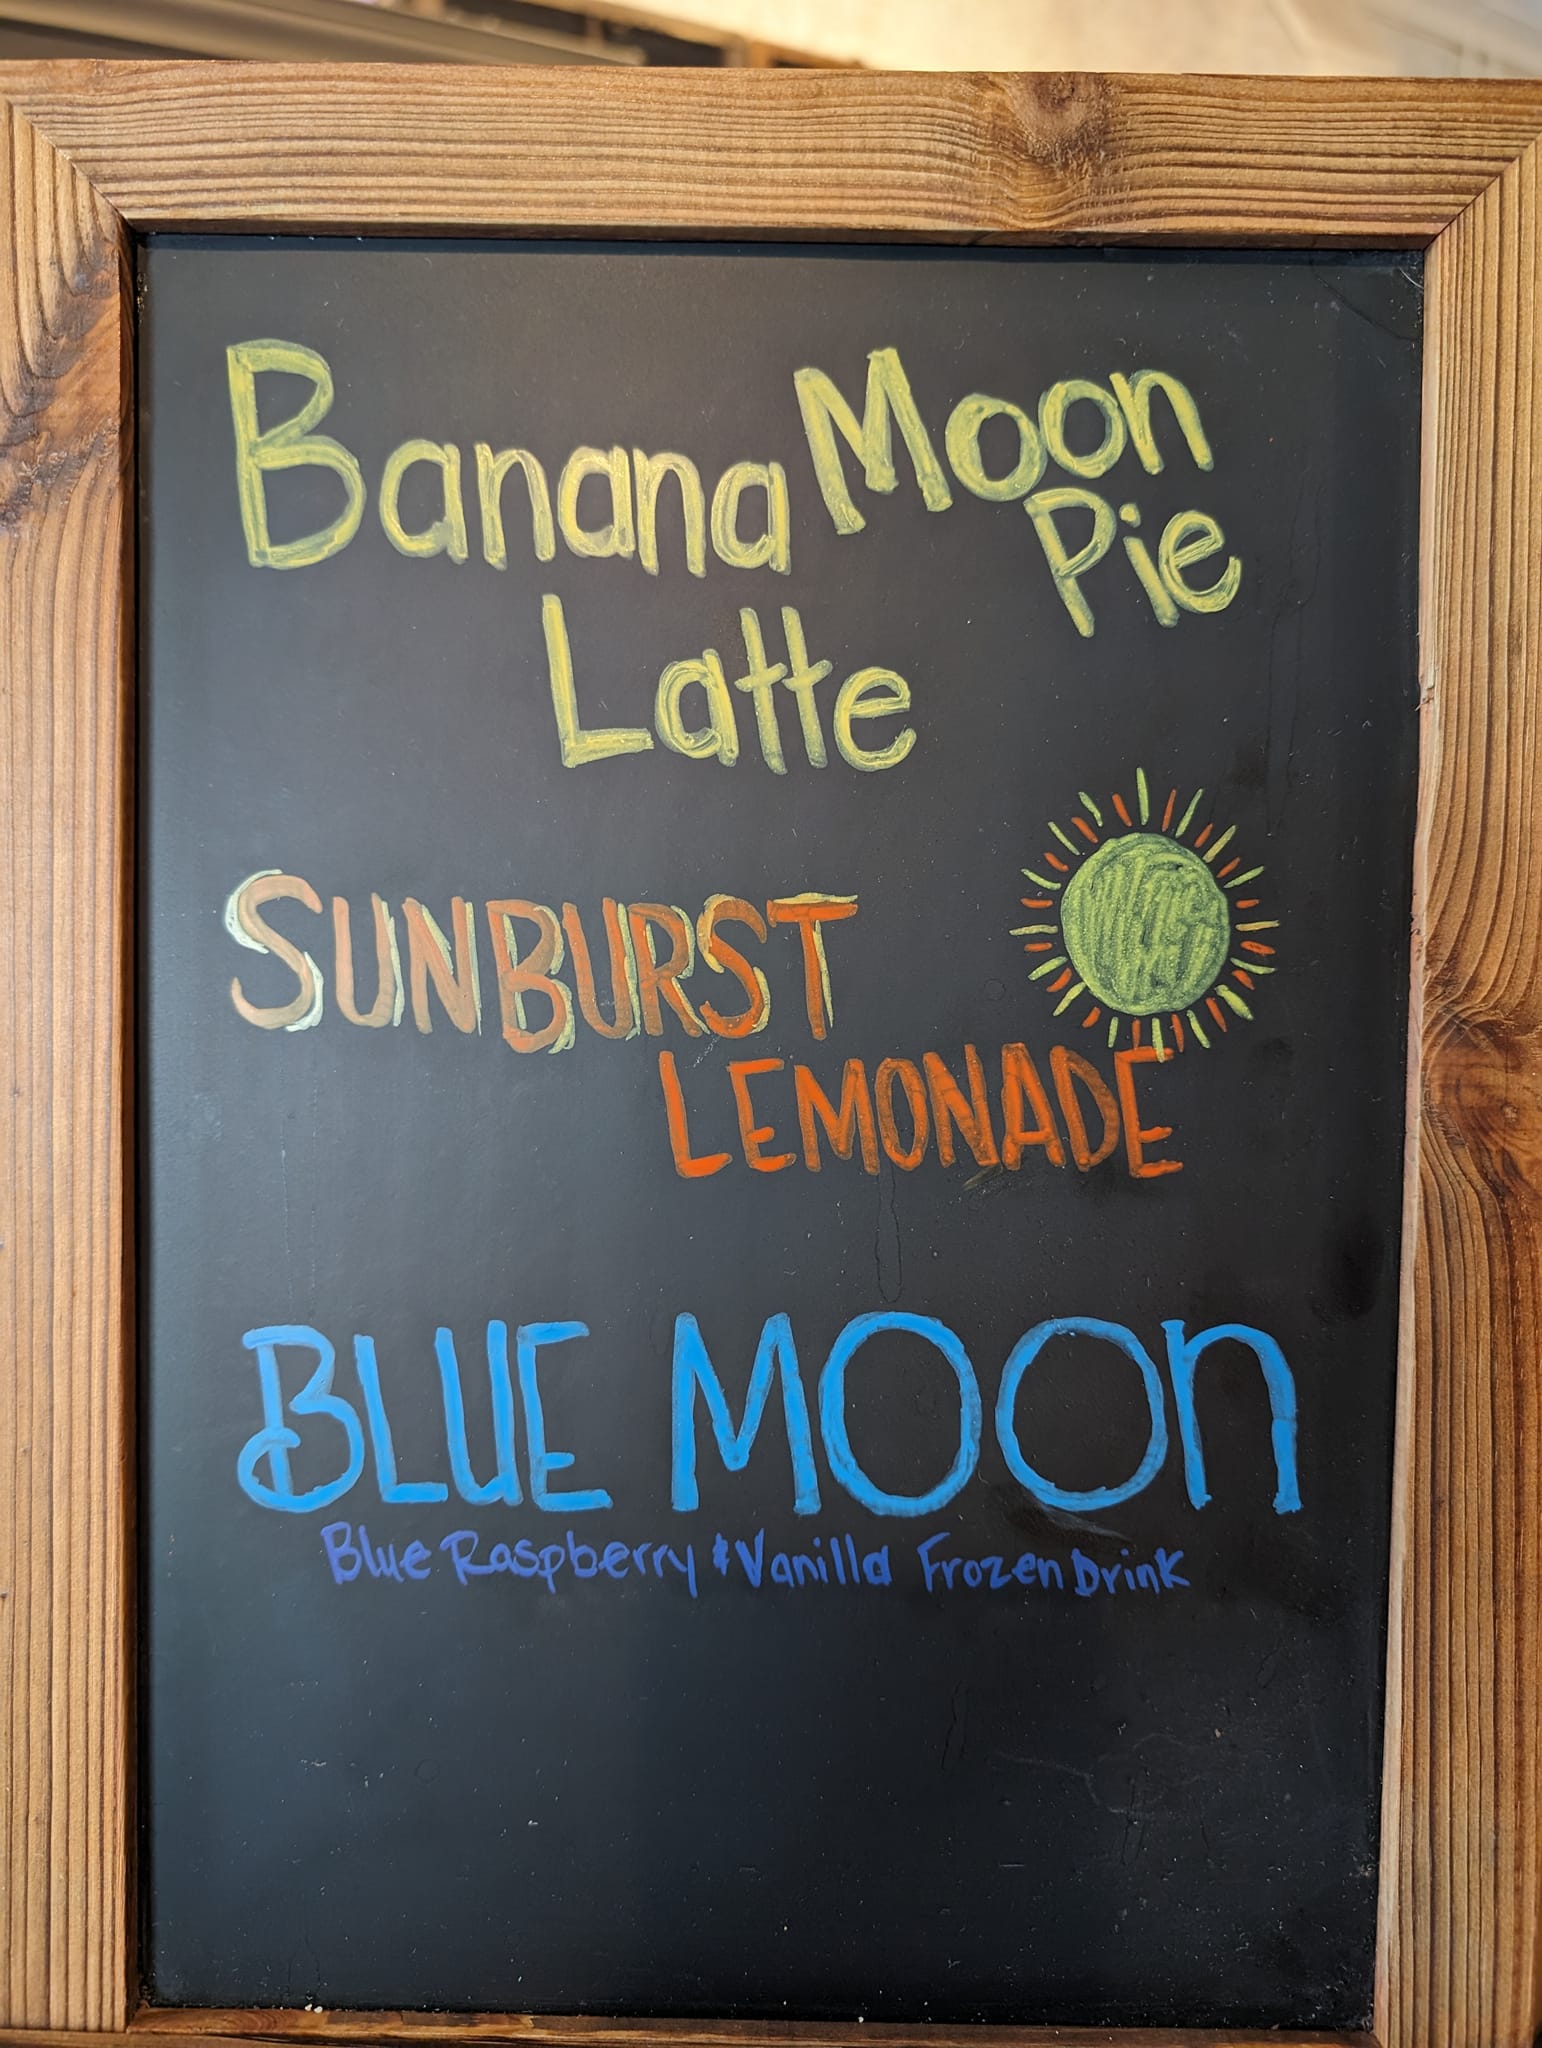 Banana Moon
Pie
Latte
SUNBURST
LEMONADE
BLUE MOON
Blue Raspberry & Vanilla Frozen Drink